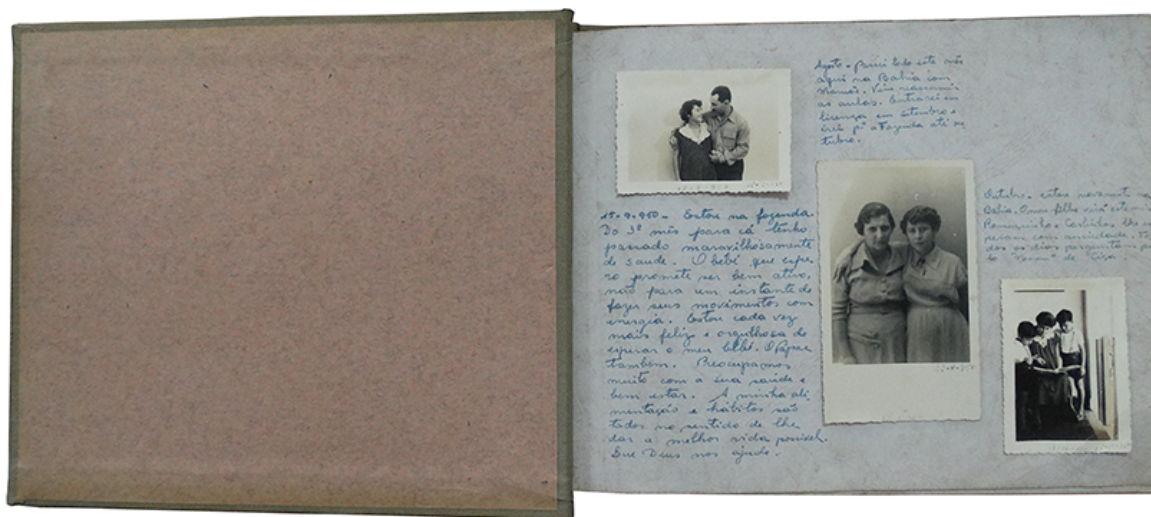 Agosto - Passei todo este mês
aqui na Bahia com
Mamãe. Vim reassumir
as aulas. Entrarei em
licença em setembro e
irei p/ a Fazenda até ou
tubro.
15-9-950 - Estou na fazenda.
Do 3º mês para cá tenho
passado maravilhosamente
de saude. O bebê que espe
ro promete ser bem ativo,
não para um instante de
fazer seus movimentos com
energia. Estou cada vez
mais feliz e orgulhosa de
esperar o meu bebê. O Papai
também. Preocupamos
muito com a sua saúde e
bem estar. A minha ali
mentação e hábitos são
todos no sentido de lhe
dar a melhor vida possivel.
Que Deus nos ajude.
Outubro - estou novamente
Bahia. O meu filho virá
lhe
peram com ansiedade. To
dos os dias perguntam
de